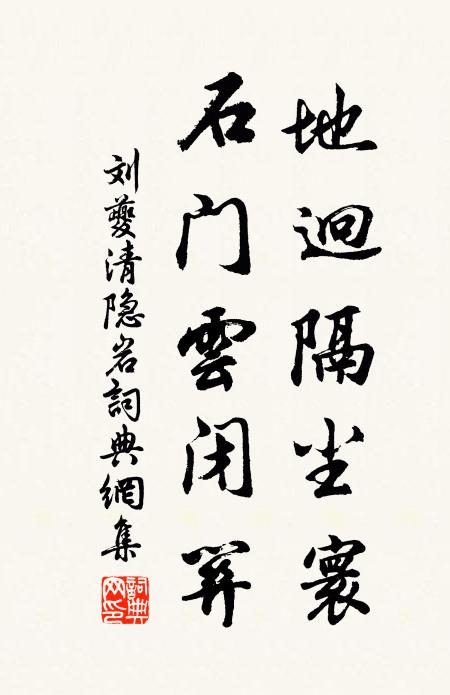 地迥隔尘寰
石门雲闭關
刘夔清隐岩詞典網集
詞典
网印